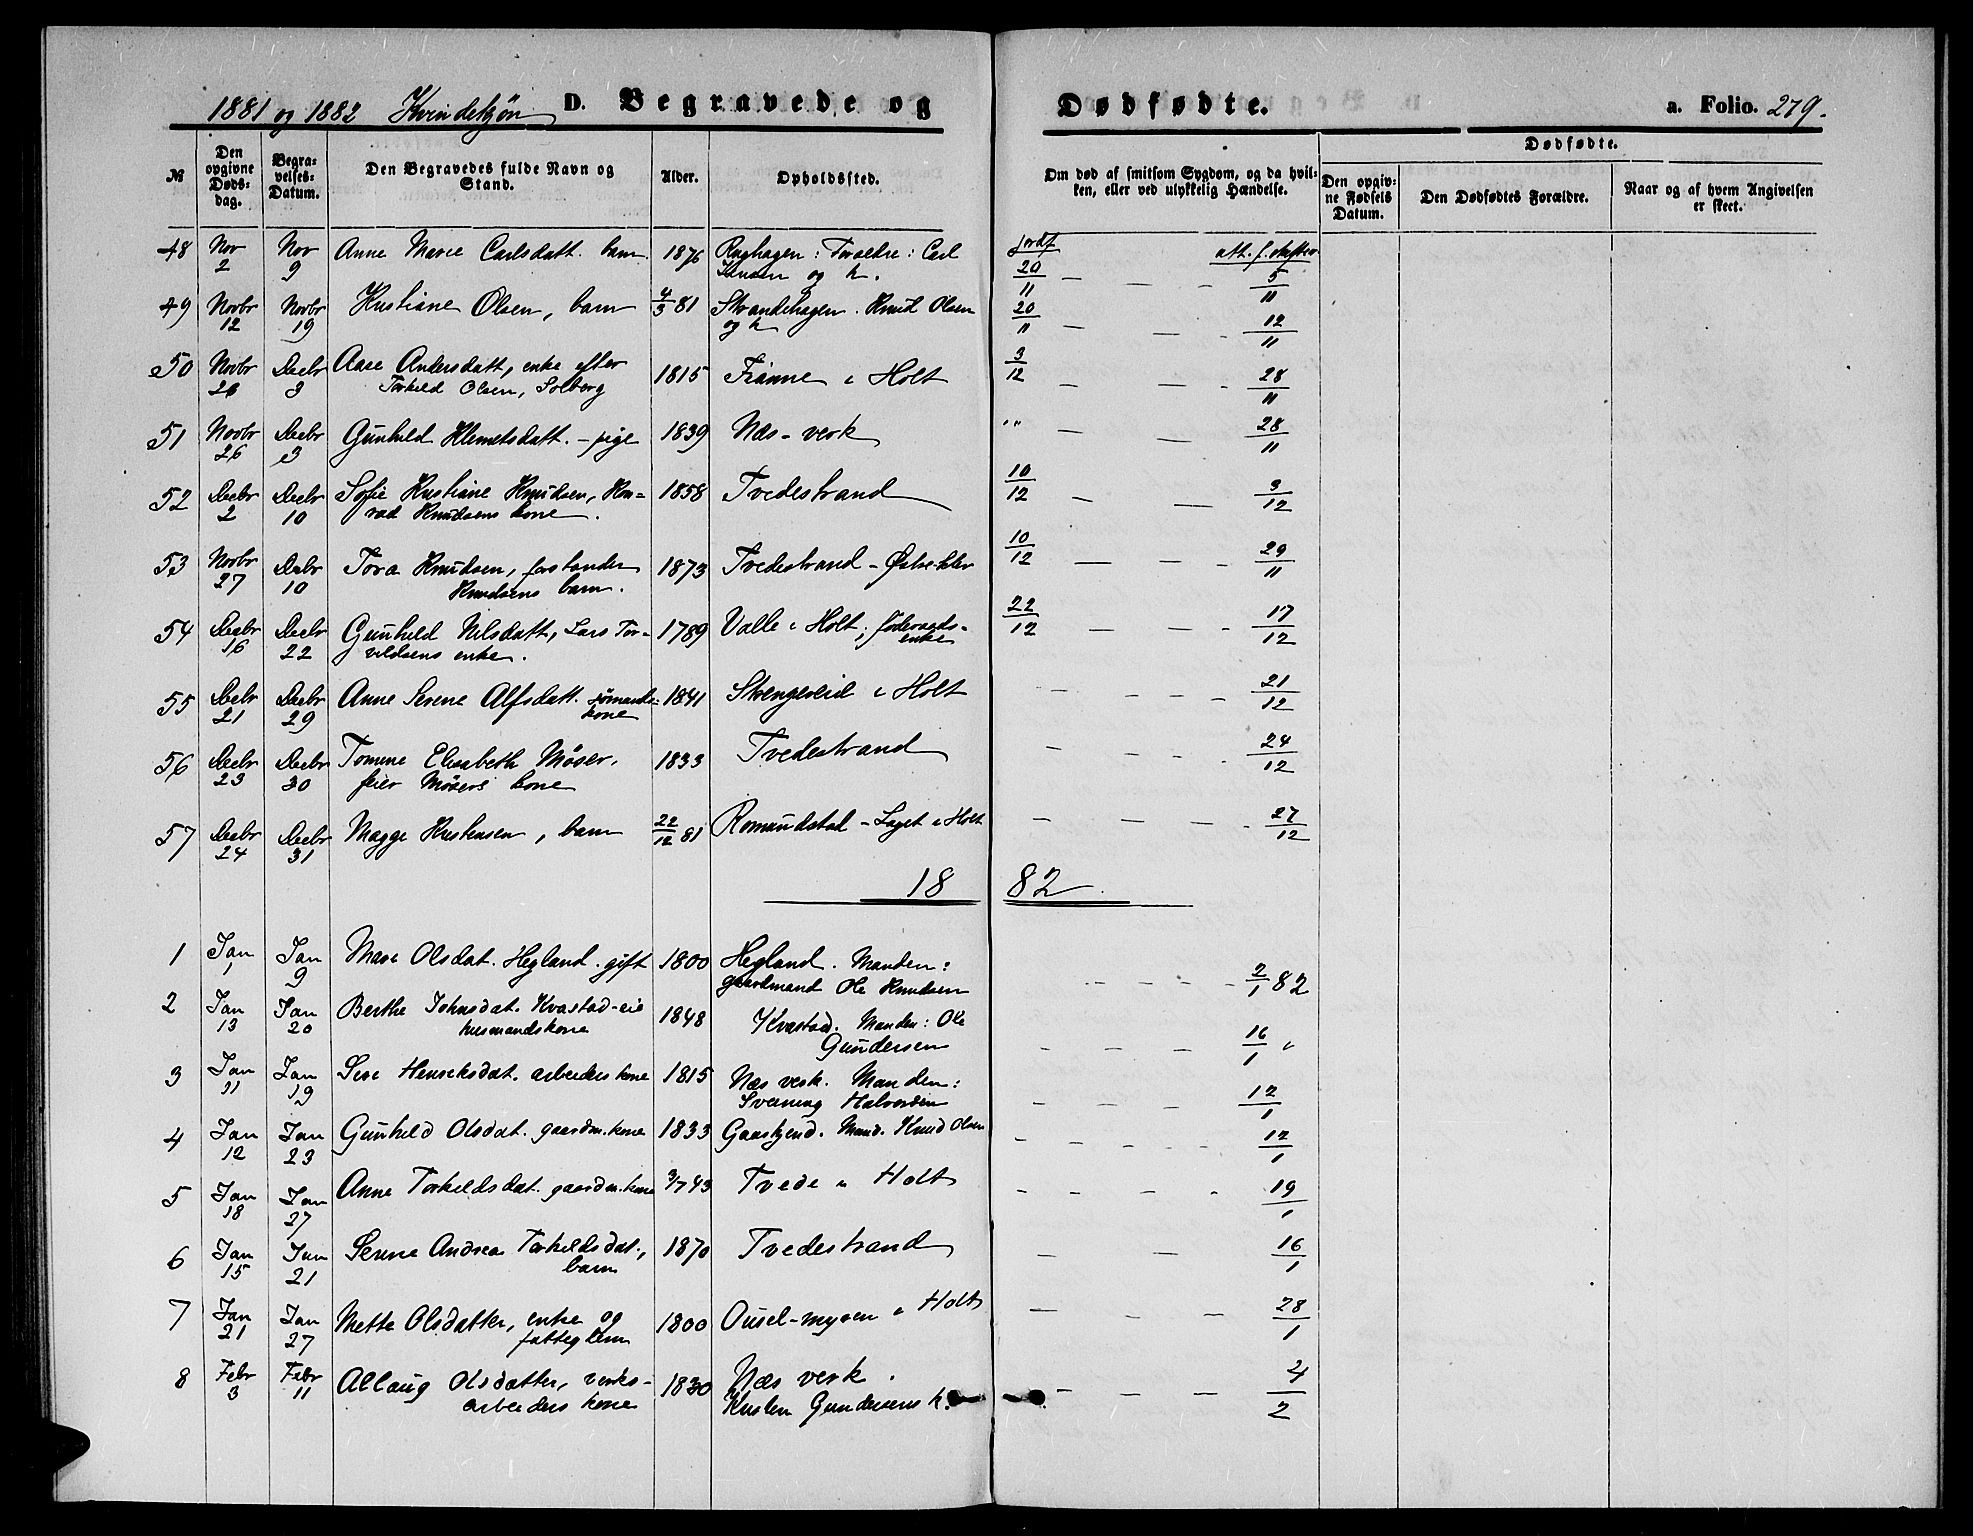 1881 og 1882 Kvindekjøn D. Begravede og Dødfødte. a. Folio. 279.
№ Den opgivne Døds- dag. Begra- velses- Datum. Den Begravedes fulde Navn og Stand. Alder. Opholdssted. Om død af smitsom Sygdom, og da hvil- ken, eller ved ulykkelig Hændelse. Dødfødte. Den opgiv- ne Fødsels Datum. Den Dødfødtes Forældre. Naar og af hvem Angivelsen er skeet.
48 Nov 2 Nov 9 Anne Marie Carlsdatt. barn. 1876 : Foraeldre: Carl jordf. att. f. skifter
Jensen og h. 20/11 — — — 5/11
49 Novbr 12 Novbr 19 Kristiane Olsen, barn 4/3 81 Strandehagen. Knud Olsen 20/11 — — - 12/11
og h
50 Novbr 26 Decbr 3 Aase Andersdatt, enke efter 1815 i Holt 3/12 — — - 28/11
Torkild Olsen, Solberg
51 Novbr 26 Decbr 3 Gunhild Klemetsdatt. - pige 1839 Næs - verk " — — 28/11
52 Decbr 2 Decbr 10 Sofie Kristiane Knudsen, Kon- 1858 Tvedestrand 10/12 — — 3/12
rad Knudsens kone.
53 Novbr 27 Decbr 10 Tora Knudsen, forstander 1873 Tvedestrand - 10/12 — — - 29/11
Knudsens barn.
54 Decbr 16 Decbr 22 Gunhild Nilsdatt, Lars Tor- 1789 Valle i Holt; føderaads- 22/12 — — - 17/12
vildsens enke. enke
55 Decbr 21 Decbr 29 Anne Serene Alfsdatt. sømands- 1841 Skengereid i Holt - - - - 21/12
kone
56 Decbr 23 Decbr 30 Tomine Elisabeth Møser, 1833 Tvedestrand - - - 24/12
feier Møsers kone
57 Decbr 24 Decbr 31 Magge Kristensen, barn 22/12 81 Romundstad - Laget i Holt — — — - 27/12
1882
1 Jan 1 Jan 9 Mari Olsdat. Hegland. gift 1800 Hegland. Manden:
gaardmand Ole Knudsen - - - - 2/1 82
2 Jan 13 Jan 20 Berthe Johnsdat. Kvastad-eie 1848 Kvastad. Manden: Ole
husmandskone Gundersen - - - 16/1 "
3 Jan 11 Jan 19 Sisi Henriksdat. arbeiders kone 1815 Næs verk. Manden:
Sverning Halvorsen - - - - 12/1
4 Jan 12 Jan 23 Gunhild Olsdat. gaardm. kone 1833 Gaaskjend. Mand. Knud Olsen - - - - 12/1
5 Jan 18 Jan 27 Anne Torkildsdat. gaardm. kone 3/7 43 Tvede i Holt - - - - 19/1
6 Jan 15 Jan 21 Serine Andrea Torkildsdat., 1870 Tvedestrand - - 16/1
barn
7 Jan 21 Jan 27 Mette Olsdatter, enke og 1800 Ousel-myren i Holt — - - 28/1
fattiglem
8 Febr 3 Febr 11 Allaug Olsdatter, verks- 1830 Næs verk. — - — 4/2
arbeiders kone Kristen Gundersens k.